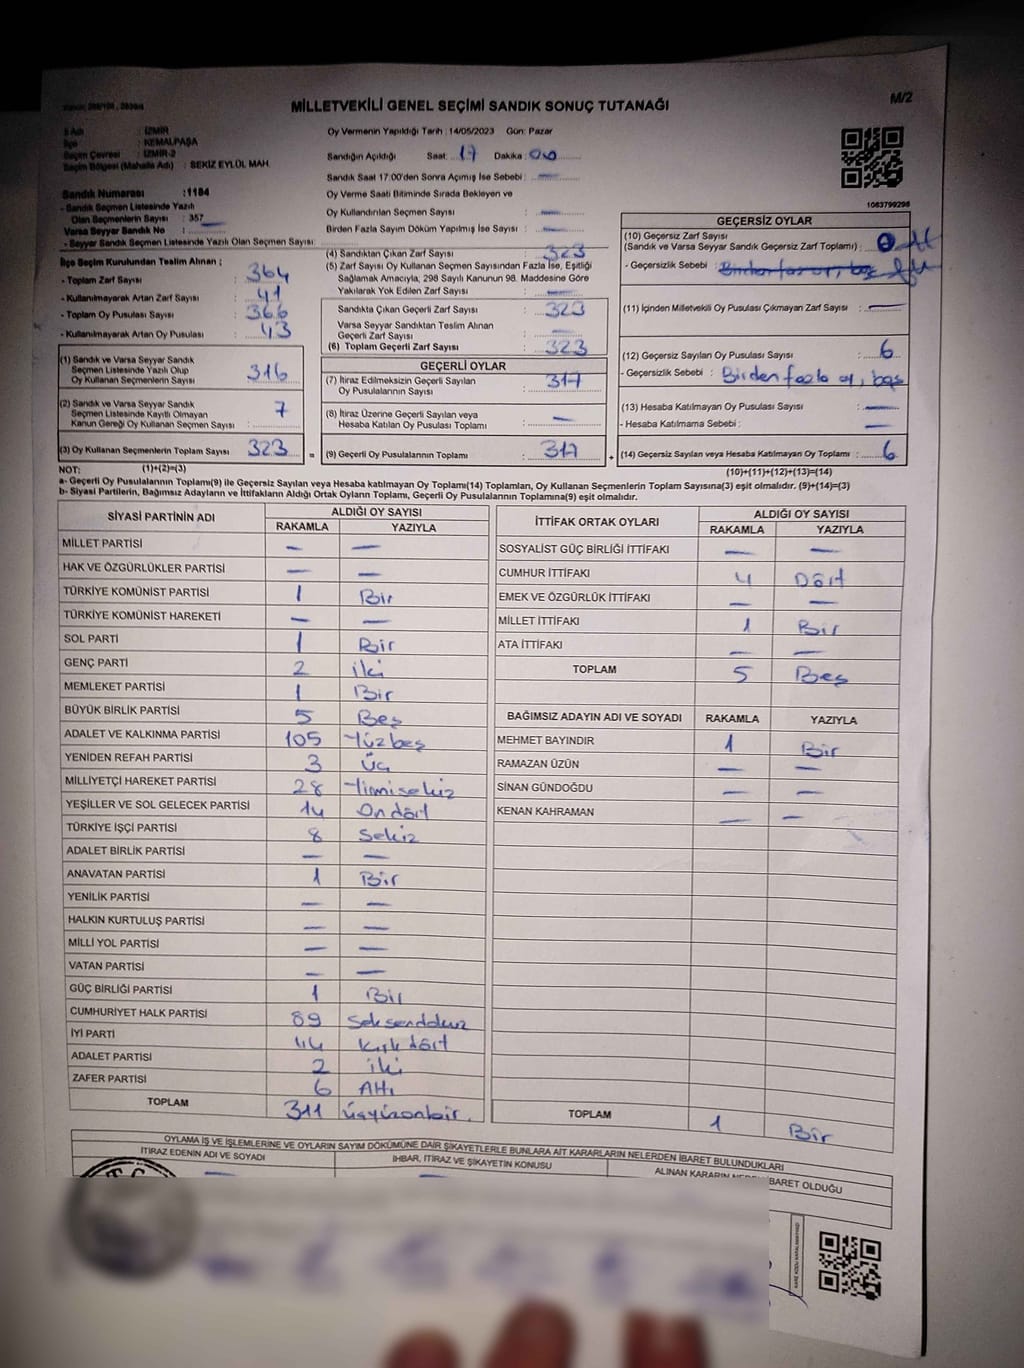 MİLLETVEKİLİ GENEL SEÇİMİ SANDIK SONUÇ TUTANAĞI
M/2
İl Adı : İZMİR
İlçe : KEMALPAŞA
Seçim Çevresi : İZMİR-2
Seçim Bölgesi (Mahalle Adı) : SEKİZ EYLÜL MAH.
Sandık Numarası : 1184
- Sandık Seçmen Listesinde Yazılı
Olan Seçmenlerin Sayısı : 357
Varsa Seyyar Sandık No :
- Seyyar Sandık Seçmen Listesinde Yazılı Olan Seçmen Sayısı:
Oy Vermenin Yapıldığı Tarih : 14/05/2023 Gün: Pazar
Sandığın Açıldığı Saat: 17 Dakika: 00
Sandık Saat 17:00'den Sonra Açımış İse Sebebi : —
Oy Verme Saati Bitiminde Sırada Bekleyen ve
Oy Kullandırılan Seçmen Sayısı : —
Birden Fazla Sayım Döküm Yapılmış İse Sayısı : —
1083799298
İlçe Seçim Kurulundan Teslim Alınan ;
- Toplam Zarf Sayısı : 364
- Kullanılmayarak Artan Zarf Sayısı : 41
- Toplam Oy Pusulası Sayısı : 366
- Kullanılmayarak Artan Oy Pusulası : 43
(1) Sandık ve Varsa Seyyar Sandık
Seçmen Listesinde Yazılı Olup
Oy Kullanan Seçmenlerin Sayısı : 316
(2) Sandık ve Varsa Seyyar Sandık
Seçmen Listesinde Kayıtlı Olmayan
Kanun Gereği Oy Kullanan Seçmen Sayısı : 7
(3) Oy Kullanan Seçmenlerin Toplam Sayısı : 323 =
(4) Sandıktan Çıkan Zarf Sayısı : 323
(5) Zarf Sayısı Oy Kullanan Seçmen Sayısından Fazla İse, Eşitliği
Sağlamak Amacıyla, 298 Sayılı Kanunun 98. Maddesine Göre
Yakılarak Yok Edilen Zarf Sayısı : —
Sandıkta Çıkan Geçerli Zarf Sayısı : 323
Varsa Seyyar Sandıktan Teslim Alınan
Geçerli Zarf Sayısı : —
(6) Toplam Geçerli Zarf Sayısı : 323
GEÇERLİ OYLAR
(7) İtiraz Edilmeksizin Geçerli Sayılan
Oy Pusulalarının Sayısı : 317
(8) İtiraz Üzerine Geçerli Sayılan veya
Hesaba Katılan Oy Pusulası Toplamı : —
(9) Geçerli Oy Pusulalarının Toplamı : 317 +
GEÇERSİZ OYLAR
(10) Geçersiz Zarf Sayısı
(Sandık ve Varsa Seyyar Sandık Geçersiz Zarf Toplamı) :
- Geçersizlik Sebebi : Birden fazla
(11) İçinden Milletvekili Oy Pusulası Çıkmayan Zarf Sayısı : —
(12) Geçersiz Sayılan Oy Pusulası Sayısı : 6
- Geçersizlik Sebebi : Birden fazla oy, boş
(13) Hesaba Katılmayan Oy Pusulası Sayısı : —
- Hesaba Katılmama Sebebi : —
(14) Geçersiz Sayılan veya Hesaba Katılmayan Oy Toplamı : 6
NOT: (1)+(2)=(3)
(10)+(11)+(12)+(13)=(14)
a- Geçerli Oy Pusulalarının Toplamı(9) ile Geçersiz Sayılan veya Hesaba katılmayan Oy Toplamı(14) Toplamları, Oy Kullanan Seçmenlerin Toplam Sayısına(3) eşit olmalıdır. (9)+(14)=(3)
b- Siyasi Partilerin, Bağımsız Adayların ve İttifakların Aldığı Ortak Oyların Toplamı, Geçerli Oy Pusulalarının Toplamına(9) eşit olmalıdır.
SİYASİ PARTİNİN ADI ALDIĞI OY SAYISI
RAKAMLA YAZIYLA
MİLLET PARTİSİ — —
HAK VE ÖZGÜRLÜKLER PARTİSİ — —
TÜRKİYE KOMÜNİST PARTİSİ 1 Bir
TÜRKİYE KOMÜNİST HAREKETİ — —
SOL PARTİ 1 Bir
GENÇ PARTİ 2 iki
MEMLEKET PARTİSİ 1 Bir
BÜYÜK BİRLİK PARTİSİ 5 Beş
ADALET VE KALKINMA PARTİSİ 105 Yüzbeş
YENİDEN REFAH PARTİSİ 3 Üç
MİLLİYETÇİ HAREKET PARTİSİ 28 Yirmisekiz
YEŞİLLER VE SOL GELECEK PARTİSİ 14 Ondört
TÜRKİYE İŞÇİ PARTİSİ 8 Sekiz
ADALET BİRLİK PARTİSİ — —
ANAVATAN PARTİSİ 1 Bir
YENİLİK PARTİSİ — —
HALKIN KURTULUŞ PARTİSİ — —
MİLLİ YOL PARTİSİ — —
VATAN PARTİSİ — —
GÜÇ BİRLİĞİ PARTİSİ 1 Bir
CUMHURİYET HALK PARTİSİ 89 Seksendokuz
İYİ PARTİ 44 Kırkdört
ADALET PARTİSİ 2 iki
ZAFER PARTİSİ 6 Altı
TOPLAM 311 üçyüzonbir
İTTİFAK ORTAK OYLARI ALDIĞI OY SAYISI
RAKAMLA YAZIYLA
SOSYALİST GÜÇ BİRLİĞİ İTTİFAKI — —
CUMHUR İTTİFAKI 4 Dört
EMEK VE ÖZGÜRLÜK İTTİFAKI — —
MİLLET İTTİFAKI 1 Bir
ATA İTTİFAKI — —
TOPLAM 5 Beş
BAĞIMSIZ ADAYIN ADI VE SOYADI RAKAMLA YAZIYLA
MEHMET BAYINDIR 1 Bir
RAMAZAN ÜZÜN — —
SİNAN GÜNDOĞDU — —
KENAN KAHRAMAN — —
TOPLAM 1 Bir
OYLAMA İŞ VE İŞLEMLERİNE VE OYLARIN SAYIM DÖKÜMÜNE DAİR ŞİKAYETLERLE BUNLARA AİT KARARLARIN NELERDEN İBARET BULUNDUKLARI
İTİRAZ EDENİN ADI VE SOYADI İHBAR, İTİRAZ VE ŞİKAYETİN KONUSU ALINAN KARARIN NEDEN İBARET OLDUĞU
— —
T.C.